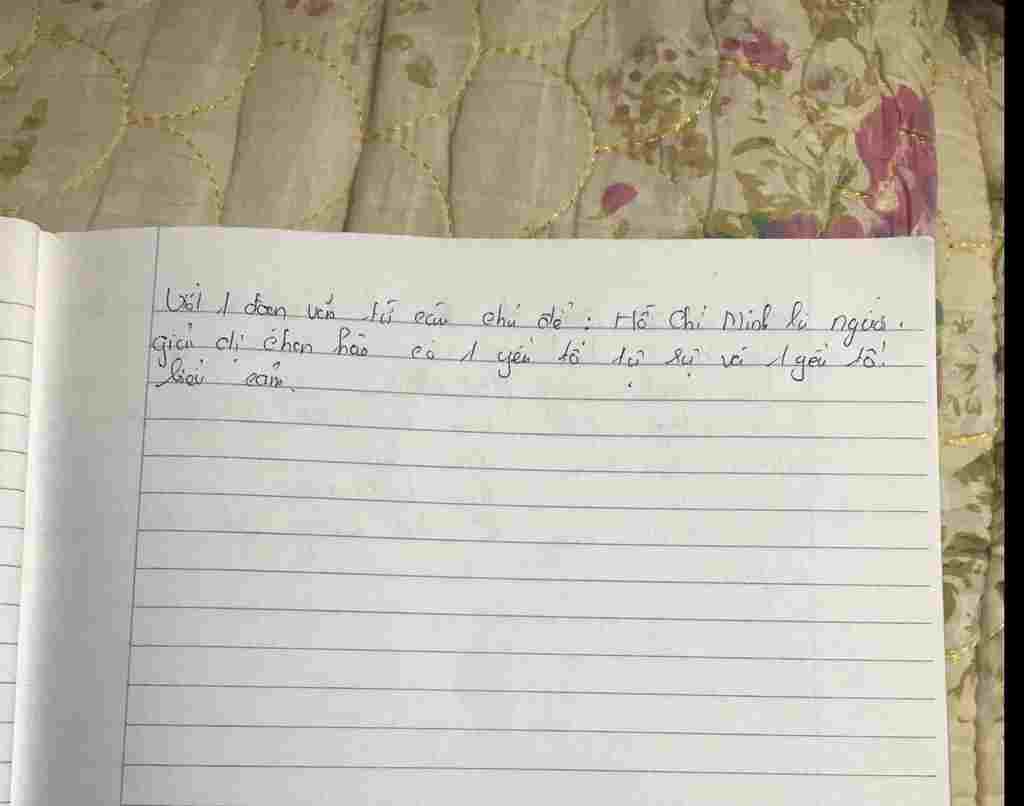 Viết 1 đoạn văn từ câu chủ đề : Hồ Chí Minh là người
giản dị chan hào có 1 yếu tố tự sự và 1 yếu tố
biểu cảm.